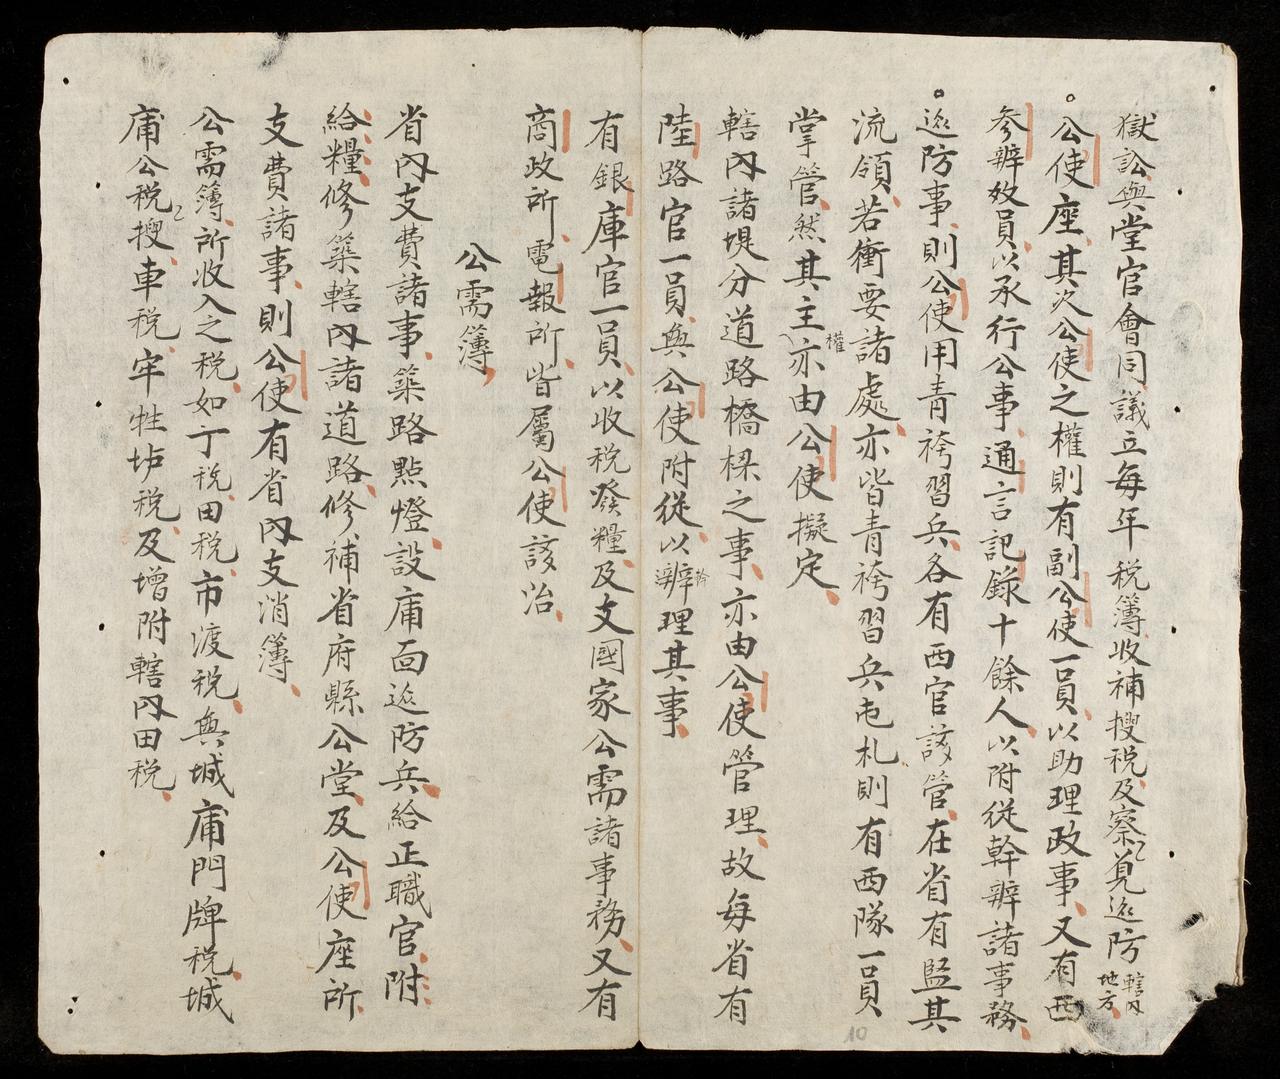 獄訟與堂官會同議立每年税簿收補搜税及察覓廵防轄内地方
公使座其次公使之權則有副公使一員以助理政事又有西
参辨效員以承行公事通言記録十餘人以附從幹辨諸事務
廵防事則公使用青袴習兵各有西官該管在省有監其
流領若衝要諸處亦皆青袴習兵屯札則有西隊一員
掌管然其主權亦由公使擬定
轄内諸堤分道路橋樑之事亦由公使管理故每省有
陸路官一員與公使附從以幹辨理其事
有銀庫官一員以收税發糧及支國家公需諸事務又有
商政所電報所皆屬公使該治
公需簿
省内支費諸事築路點燈設庯面廵防兵給正職官附
給糧修築轄内諸道路修補省府縣公堂及公使座所
支費諸事則公使有省内支消簿
公需簿所收入之税如丁税田税市渡税與城庯門牌税城
庯公税搜車税牢牲垆税及增附轄内田税
10